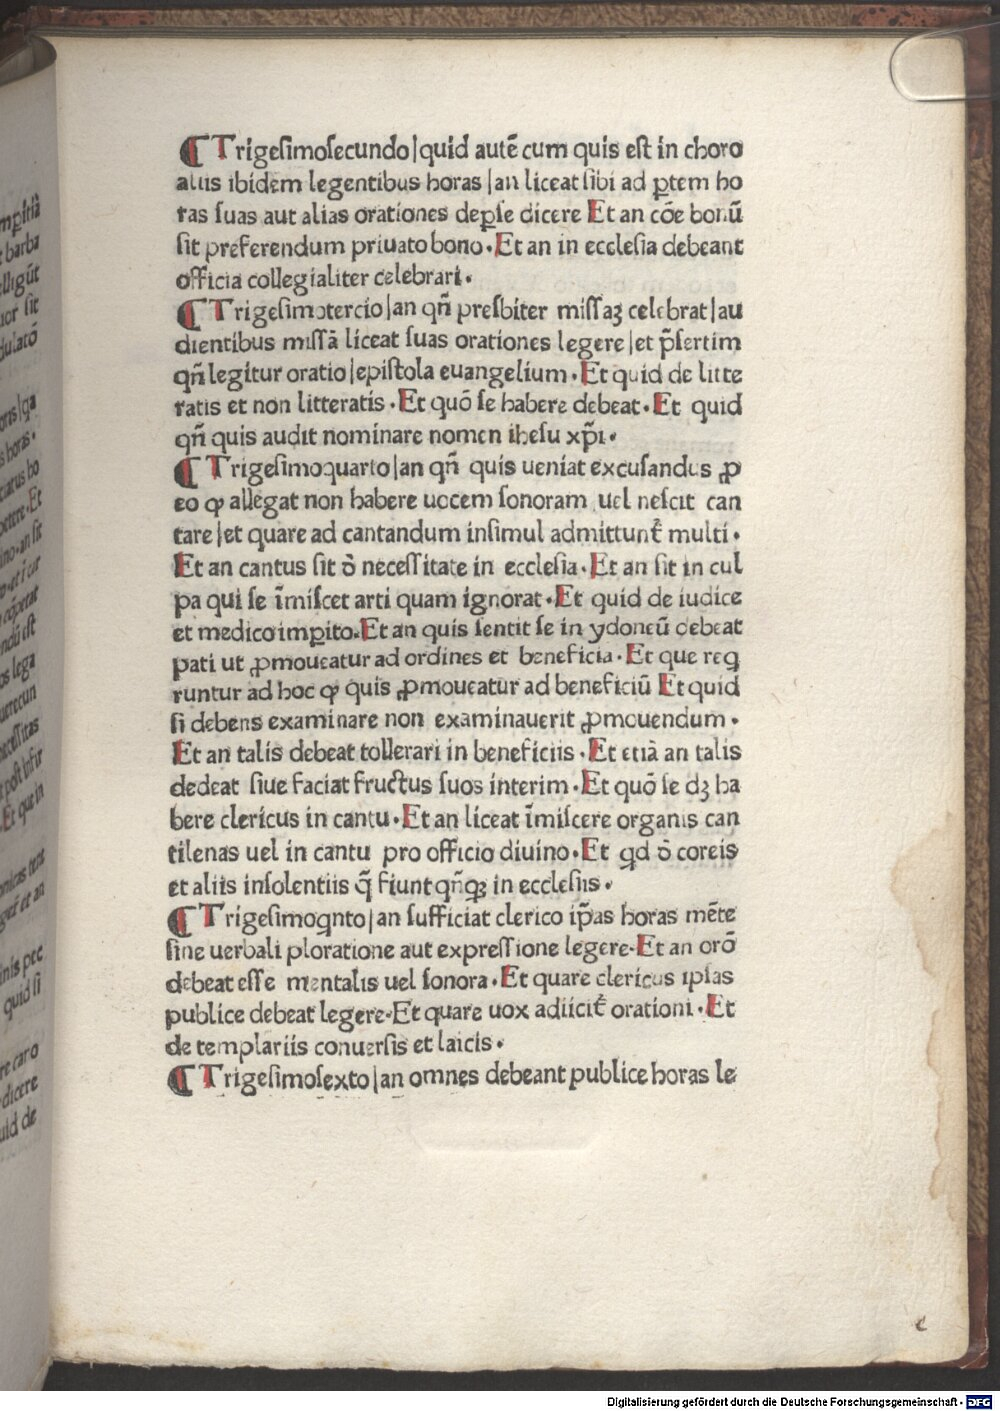 ¶ Trigesimosecundo|quid autē cum quis est in choro
aliis ibidem legentibus horas|an liceat sibi ad ꝑtem ho
ras suas aut alias orationes deꝑse dicere Et an cōe bonū
sit preferendum priuato bono. Et an in ecclesia debeant
officia collegialiter celebrari.
¶ Trigesimotercio|an qn̄ presbiter missaꝫ celebrat|au
dientibus missā liceat suas orationes legere|et p̄sertim
qn̄ legitur oratio|epistola euangelium. Et quid de litte
ratis et non litteratis. Et quō se habere debeat. Et quid
qn̄ quis audit nominare nomen ihesu xp̄i.
¶ Trigesimoquarto|an qn̄ quis ueniat excusandus ꝓ
eo ꝙ allegat non habere uocem sonoram uel nescit can
tare|et quare ad cantandum insimul admittunt᷑ multi.
Et an cantus sit ō necessitate in ecclesia. Et an sit in cul
pa qui se īmiscet arti quam ignorat. Et quid de iudice
et medico imꝑito. Et an quis sentit se in ydoneū debeat
pati ut ꝓmoueatur ad ordines et beneficia. Et que reꝗ
runtur ad hoc ꝙ quis ꝓmoueatur ad beneficiū Et quid
si debens examinare non examinauerit ꝓmouendum.
Et an talis debeat tollerari in beneficiis. Et etiā an talis
dedeat siue faciat fructus suos interim. Et quō se dꝫ ha
bere clericus in cantu. Et an liceat īmiscere organis can
tilenas uel in cantu pro officio diuino. Et ꝗd ō coreis
et aliis insolentiis q̄ fiunt qn̄qꝫ in ecclesiis.
¶ Trigesimoꝗnto|an sufficiat clerico ip̄as horas mēte
sine uerbali ploratione aut expressione legere. Et an orō
debeat esse mentalis uel sonora. Et quare clericus ipsas
publice debeat legere. Et quare uox adiicit᷑ orationi. Et
de templariis conuersis et laicis.
¶ Trigesimosexto|an omnes debeant publice horas le
e
Digitalisierung gefördert durch die Deutsche Forschungsgemeinschaft - DFG